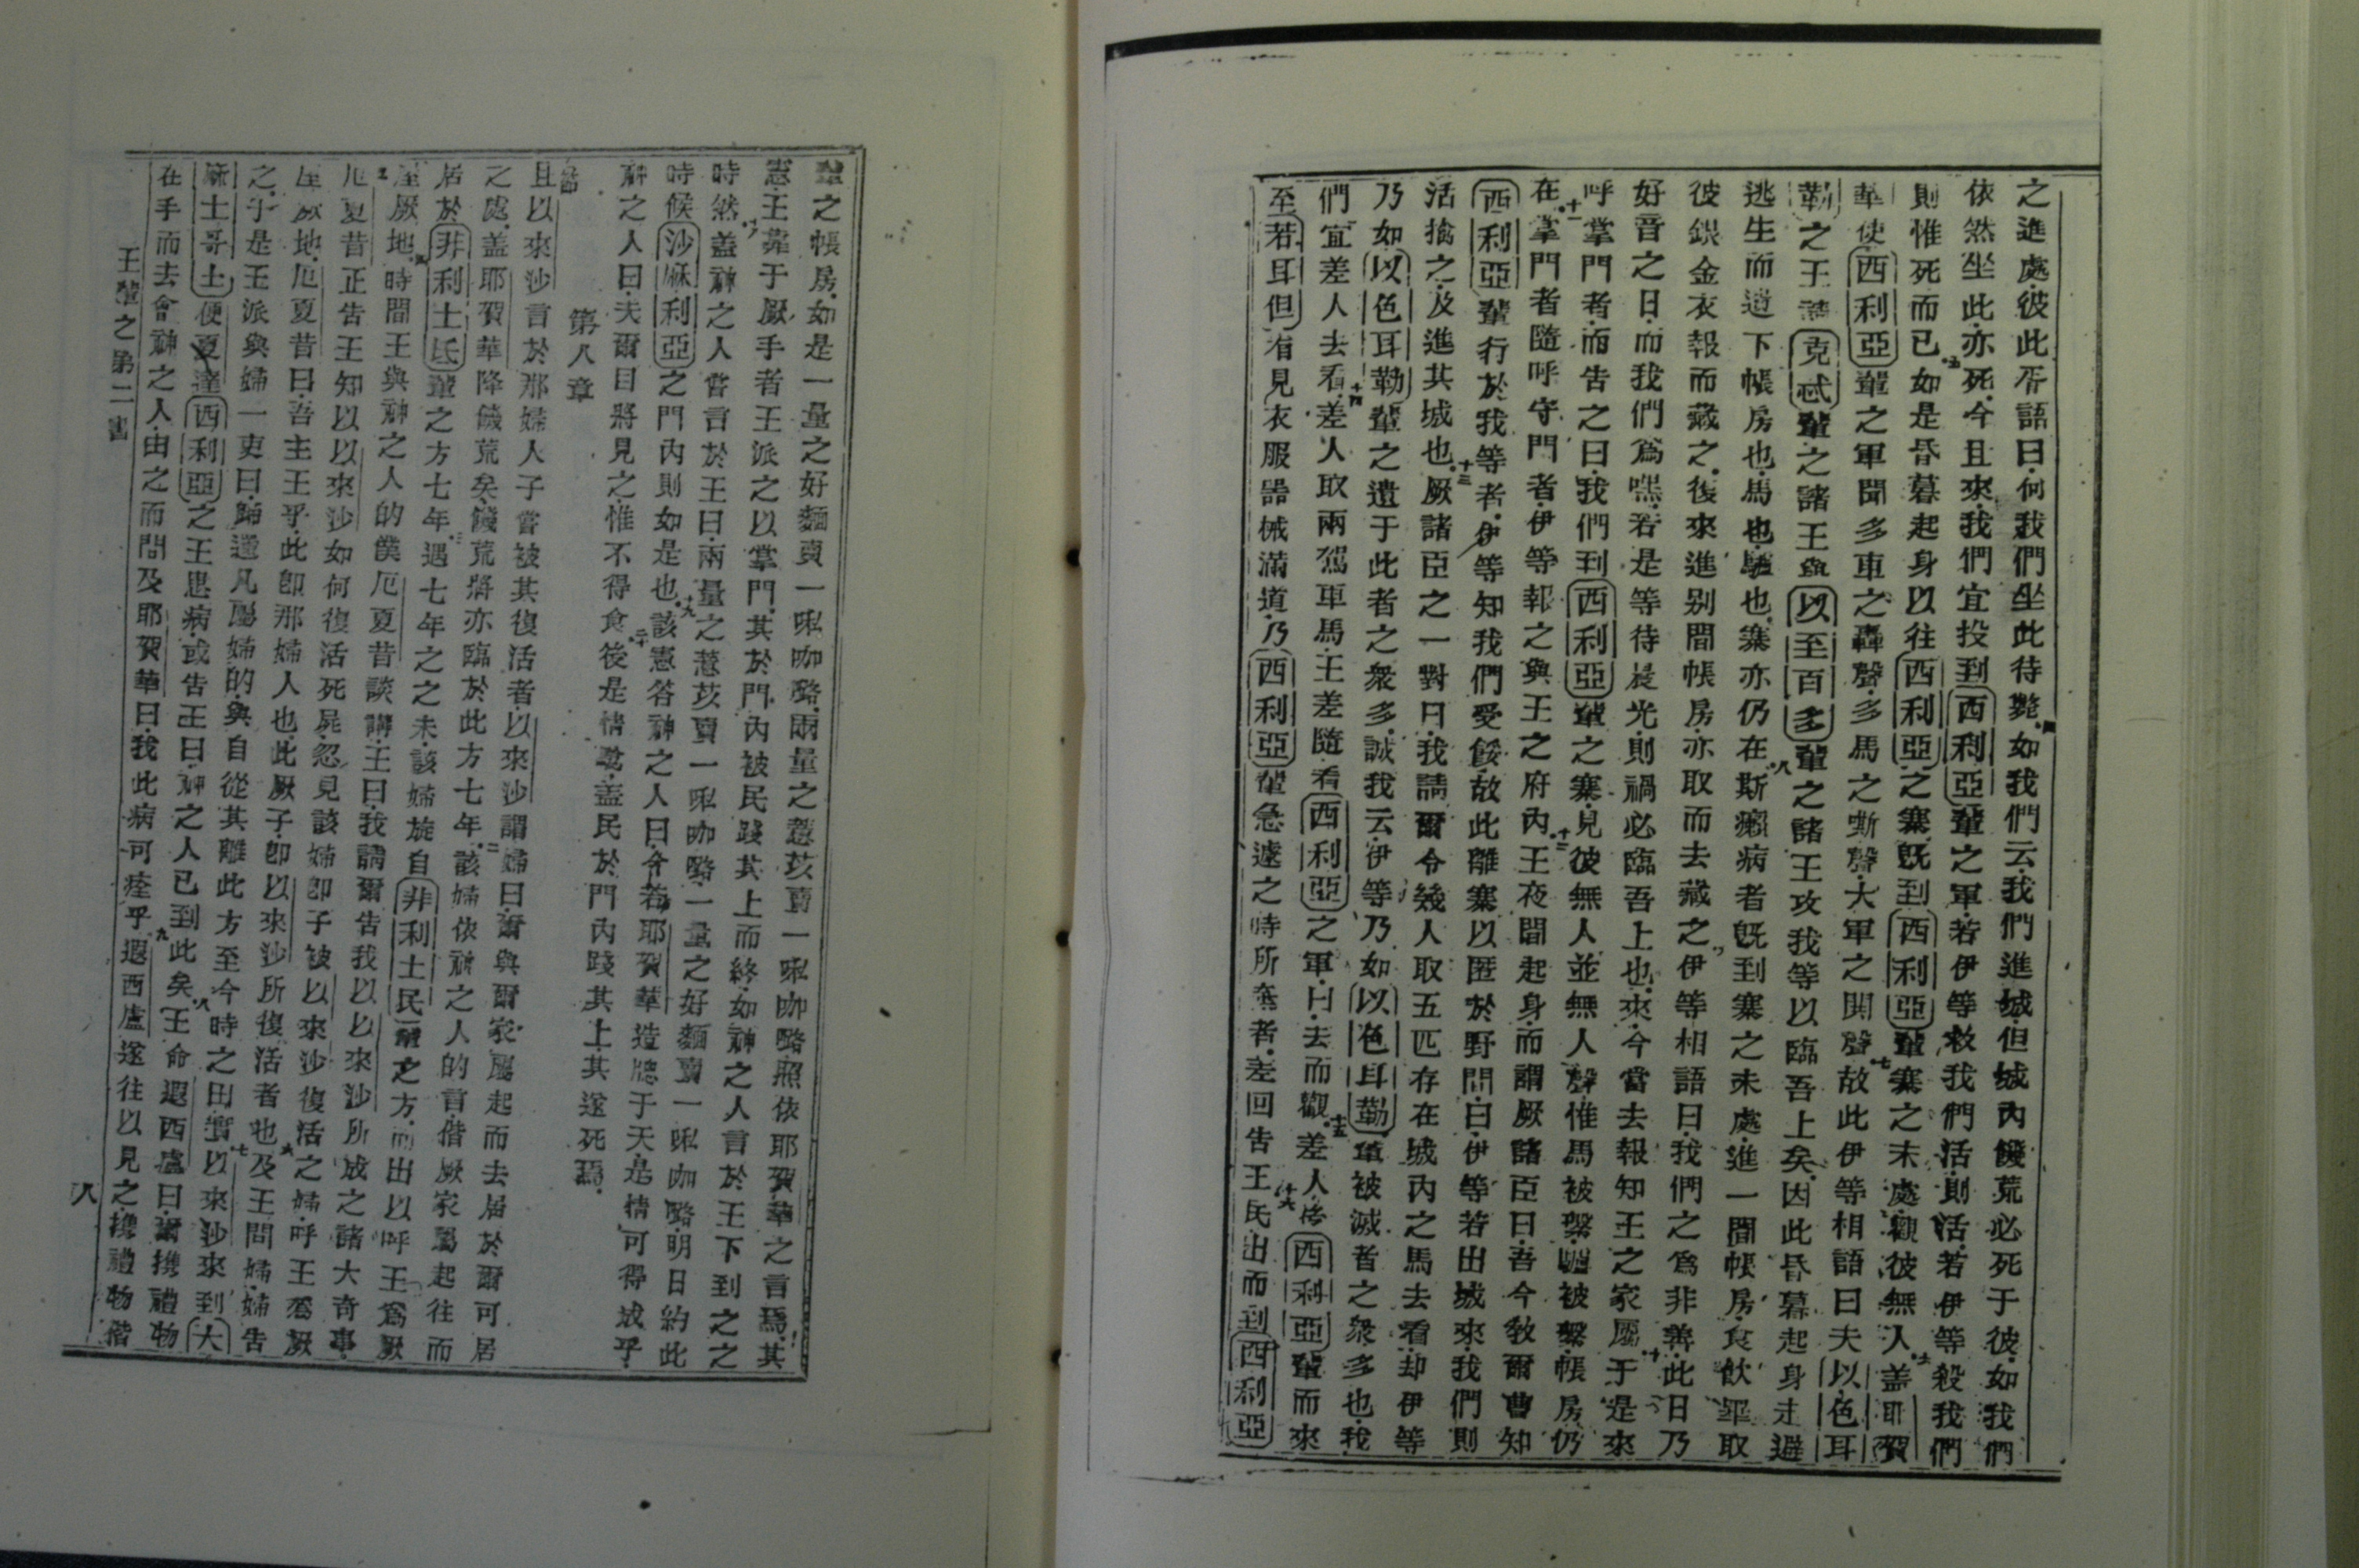 之進處彼此㕥語曰何我們坐此待斃四如我們云我們進城但城內饑荒必死于彼如我們
依然坐此亦死今且來我們宜投到西利亞輩之軍若伊等救我們活則活若伊等殺我們
則惟死而已五如是昏暮起身以往西利亞之寨既到西利亞輩寨之末處觀彼無人六盖耶賀
華使西利亞輩之軍聞多車之轟聲多馬之嘶聲大軍之鬨聲故此伊等相語曰夫以色耳
勒之王請克忒輩之諸王與以至百多輩之諸王攻我等以臨吾上矣七因此昏暮起身走避
逃生而遺下帳房也馬也驢也寨亦仍在斯八癩病者既到寨之末處進一間帳房食飲畢取
彼銀金衣報而藏之復來進别間帳房亦取而去藏之九伊等相語曰我們之為非善此日乃
好音之日而我們為嘿若是等待晨光則禍必臨吾上也來今當去報知王之家屬十于是來
呼掌門者而告之曰我們到西利亞輩之寨見彼無人並無人聲惟馬被繫驢被繫帳房仍
在十一掌門者隨呼守門者伊等報之與王之府內十二王夜間起身而謂厥諸臣曰吾今教爾曹知
西利亞輩行於我等者伊等知我們受餒故此離寨以匿於野間曰伊等若出城來我們則
活擒之及進其城也十三厥諸臣之一對曰我請爾令幾人取五匹存在城內之馬去看却伊等
乃如以色耳勒輩之遺于此者之衆多誠我云伊等乃如以色耳勒輩被滅者之衆多也我
們宜差人去看十四差人取兩駕車馬王差隨看西利亞之軍曰去而觀十五差人
西利亞輩而來
至若耳但有見衣服器械滿道乃西利亞輩急遽之時所棄者差回告王十六民出而到西利亞
輩之帳房如是一量之好麵賣一𠸄咖咯兩量之薏苡賣一𠸄咖咯照依耶賀華之言焉其
憲王靠于厥手者王派之以掌門其於門內被民踐其上而終如神之人言於王下到之之
時然盖神之人嘗言於王曰兩量之薏苡賣一𠸄咖咯一量之好麵賣一𠸄咖咯明日約此
時候沙蔴利亞之門內則如是也十九該憲答神之人曰今若耶賀華造牕于天是情可得成乎
神之人曰夫爾目將見之惟不得食二十後是情驗盖民於門內踐其上其遂死焉
第八章
且以來沙言於那婦人子嘗被其復活者以來沙謂婦曰爾與爾家屬起而去居於爾可居
之處盖耶賀華降饑荒矣饑荒將亦臨於此方七年二該婦依神之人的言偕厥家屬起往而
居於非利士氐輩之方七年三遇七年之之末該婦旋自非利士民輩之方而出以呼王為厥
厔厥地四時間王與神之人的僕厄夏昔談講王曰我請爾告我以以來沙所成之諸大奇事
五厄夏昔正告王知以以來沙如何復活死屍忽見該婦卽子被以來沙復活之婦呼王為厥
厔厥地厄夏昔曰吾主王乎此卽那婦人也此厥子卽以來沙所復活者也六及王問婦婦告
之于是王派與婦一吏曰歸還凡屬婦的與自從其離此方至今時之田實七以來沙來到大
嘛士哥士便夏達西利亞之王患病或告王曰神之人已到此矣八王命遐西盧曰爾擕禮物
在手而去會神之人由之而問及耶賀華曰我此病可痊乎九遐西盧遂往以見之擕禮物偕
王輩之第二書
八